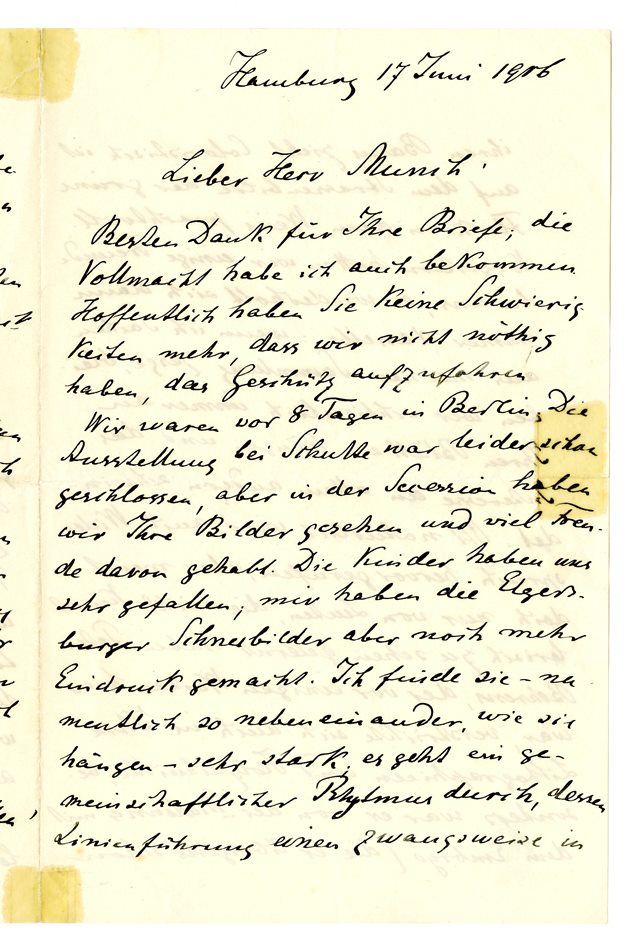 Hamburg 17 Juni 1906
Lieber Herr Munch.
Besten Dank für Ihre Briefe; die
Vollmacht habe ich auch bekommen
Hoffentlich haben Sie keine Schwierig
keiten mehr, dass wir nicht nöthig
haben, das Geschütz aufzufahren
Wir waren vor 8 Tagen in Berlin. Die
Ausstellung bei Schulte war leider schon
geschlossen, aber in der Secession haben
wir Ihre Bilder gesehen und viel Freu-
de davon gehabt. Die Kinder haben uns
sehr gefallen; mir haben die Elgers-
burger Schneebilder aber noch mehr
Eindruck gemacht. Ich finde sie - na
mentlich so nebeneinander, wie sie
hängen - sehr stark, es geht ein ge-
meinschaftlicher Rhytmus durch, dessen
Linienführung einen zwangsweise in